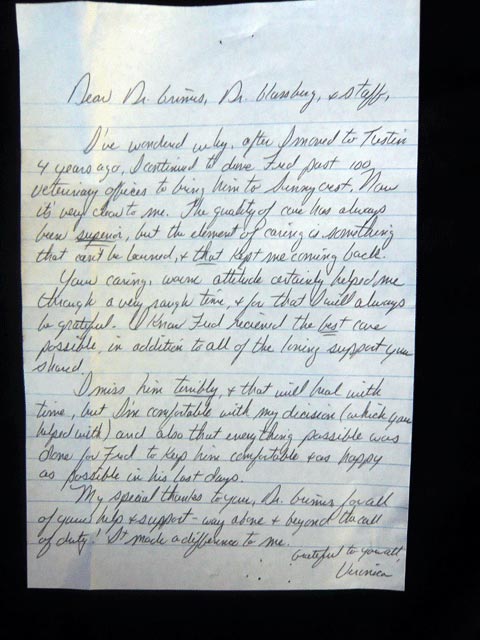 Dear Dr. Grimes, Dr. Glassberg, & staff,
I've wondered why, after I moved to Tustin
4 years ago, I continued to drive Fred past 100
veterinary offices to bring him to Sunnycrest. Now
it's very clear to me. The quality of care has always
been superior, but the element of caring is something
that can't be learned, & that kept me coming back.
Your caring, warm attitude certainly helped me
through a very rough time, & for that I will always
be grateful. I know Fred recieved the best care
possible, in addition to all of the loving support you
shared.
I miss him terribly, & that will heal with
time, but I'm comfortable with my decision (which you
helped with) and also that everything possible was
done for Fred to keep him comfortable & as happy
as possible in his last days.
My special thanks to you, Dr. Grimes for all
of your help & support - way above & beyond the call
of duty! It made a difference to me.
Grateful to you all,
Veronica